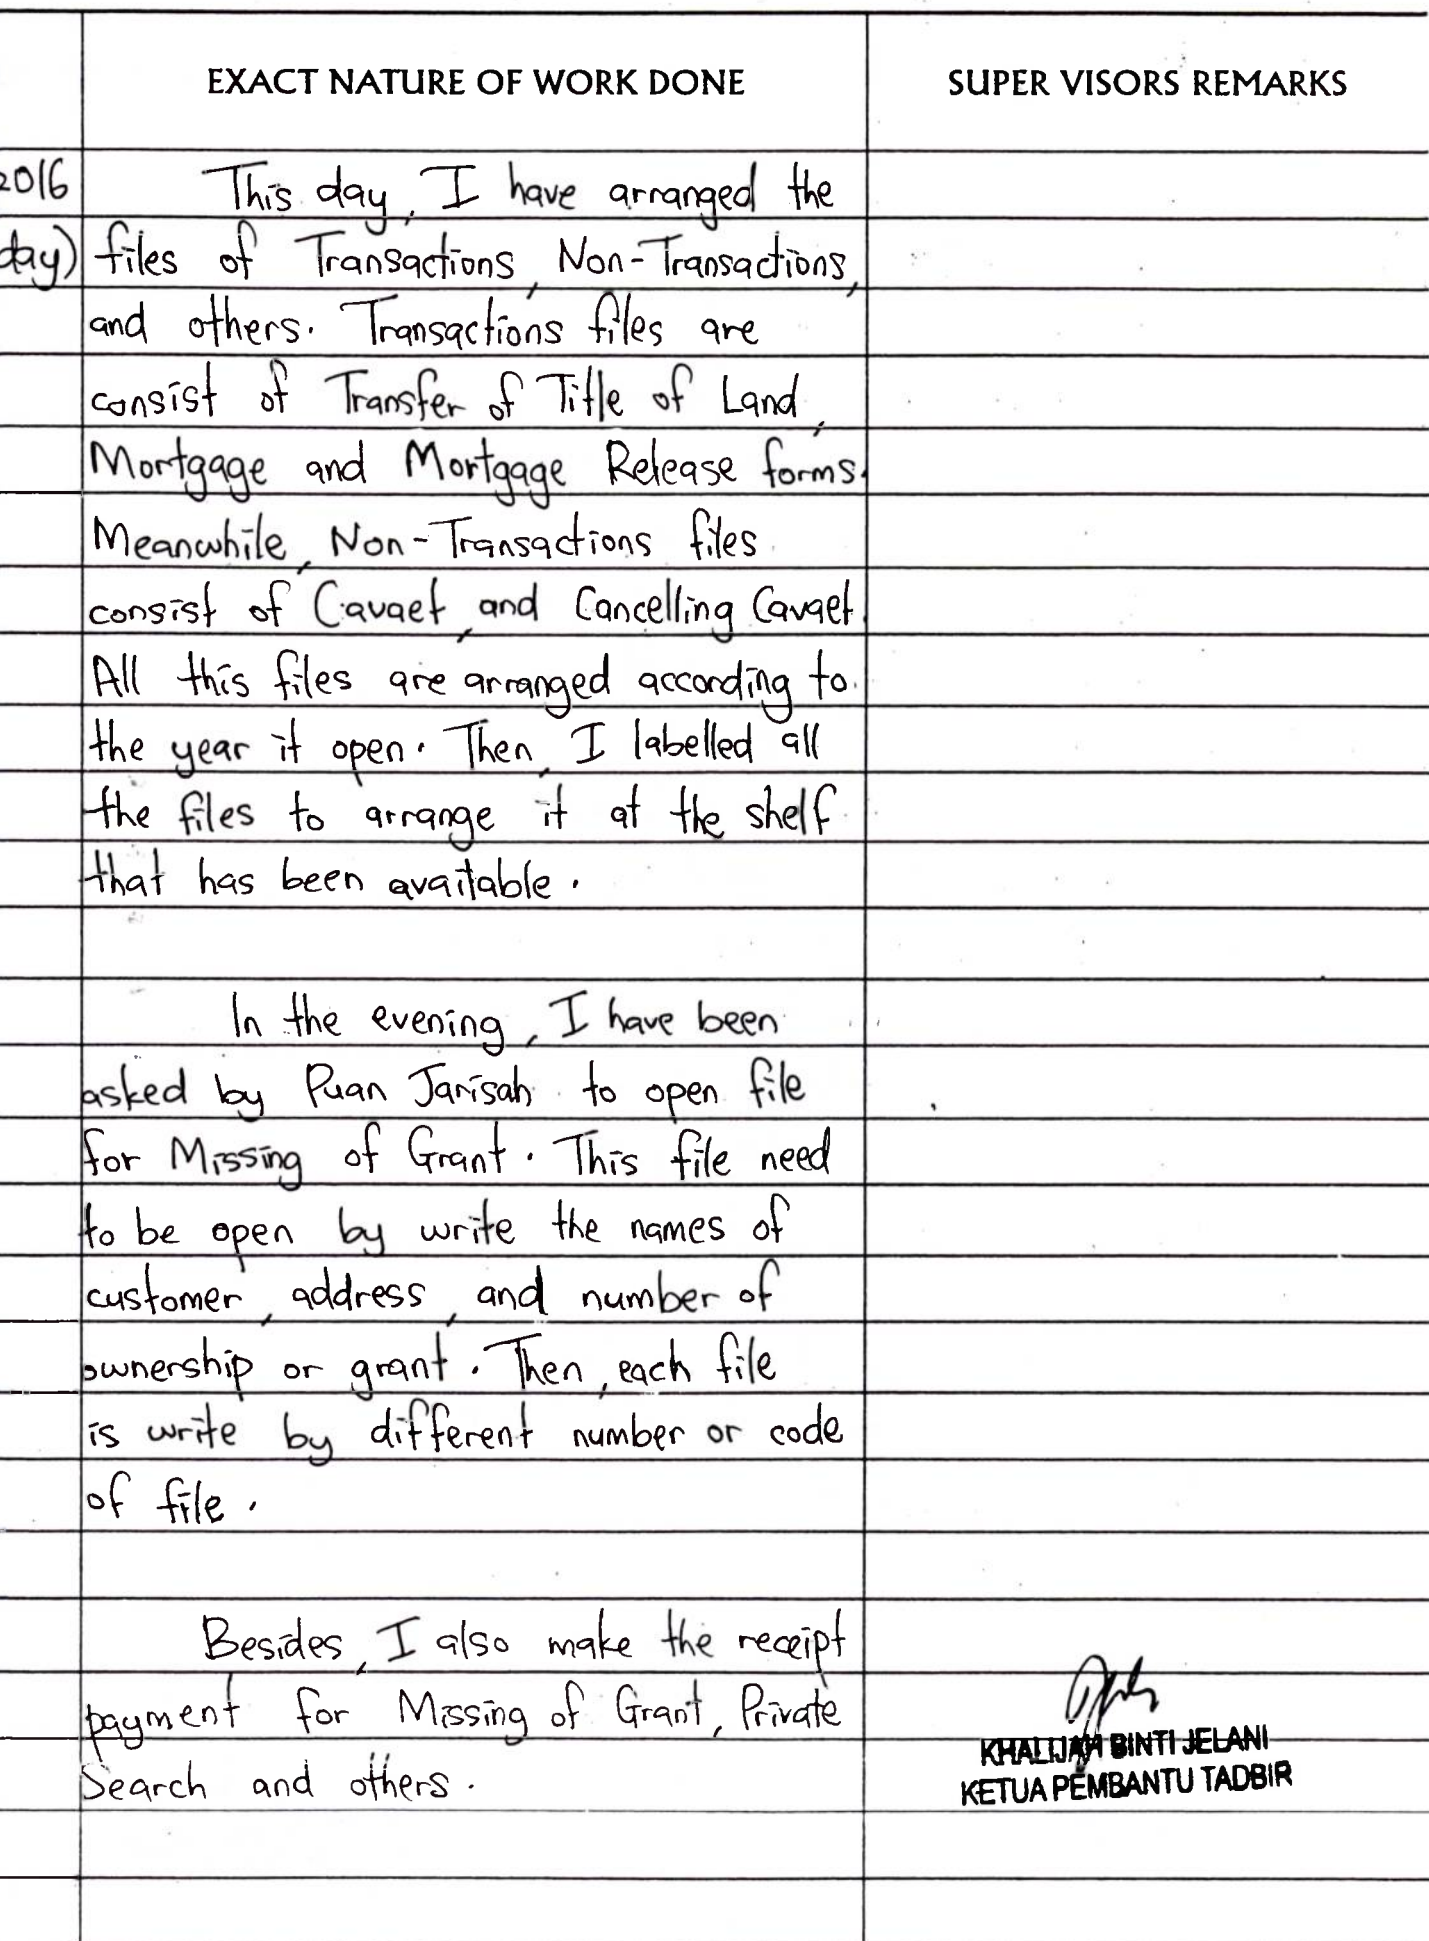 EXACT NATURE OF WORK DONE
SUPER VISORS REMARKS
2016
This day, I have arranged the
day)
files of Transactions, Non-Transactions,
and others. Transactions files are
consist of Transfer of Title of Land,
Mortgage and Mortgage Release forms.
Meanwhile, Non-Transactions files
consist of Cavaet, and Cancelling Cavaet.
All this files are arranged according to
the year it open. Then, I labelled all
the files to arrange it at the shelf
that has been available.
In the evening, I have been
asked by Puan Jarisah to open file
for Missing of Grant. This file need
to be open by write the names of
customer, address, and number of
ownership or grant. Then, each file
is write by different number or code
of file.
Besides, I also make the receipt
payment for Missing of Grant, Private
Search and others.
KHALIJAH BINTI JELANI
KETUA PEMBANTU TADBIR